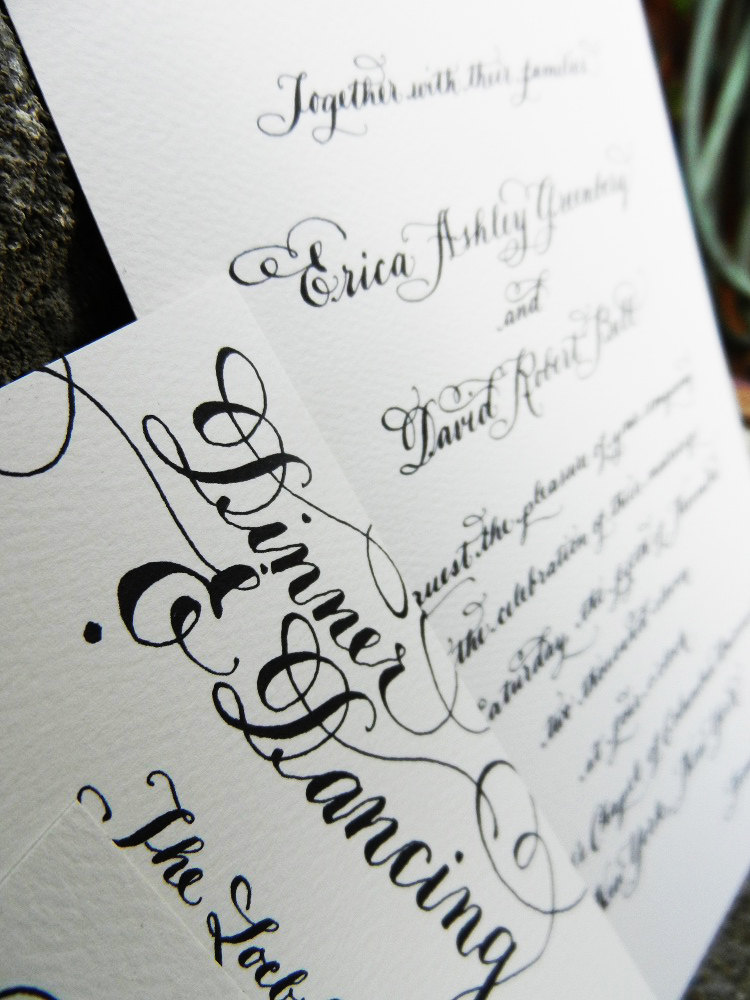 Together with their families
Erica Ashley Greenberg
and
David Robert
the pleasure of your company
the celebration of their marriage
the
two thousand
at
Chapel of Columbia
New York, New York
Dinner
& Dancing
The Loeb